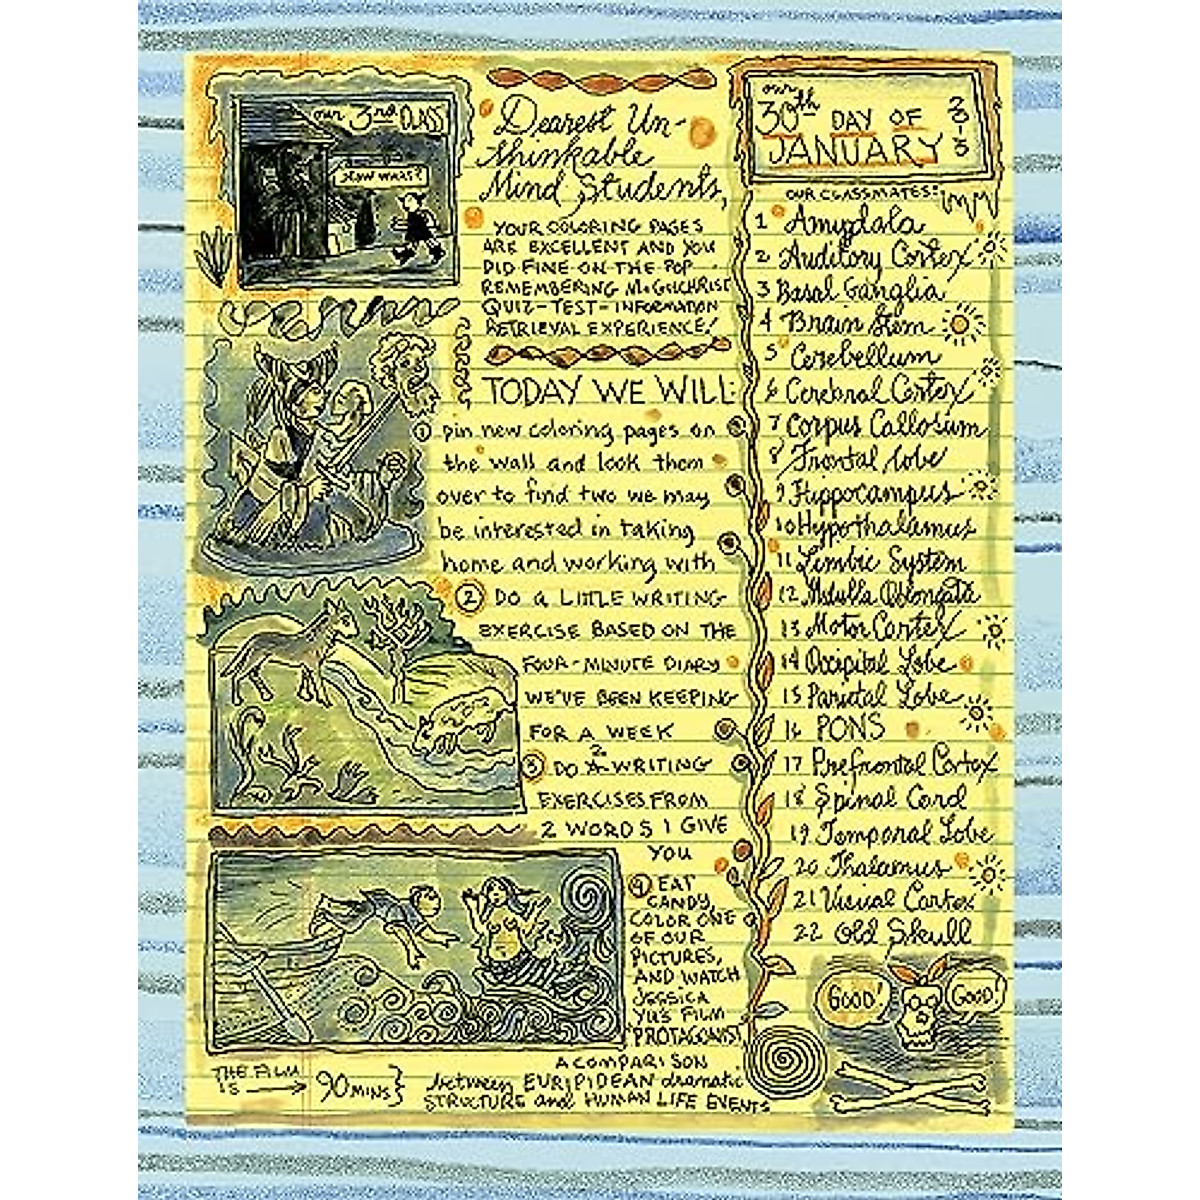 our 3rd CLASS
now what?
Dearest Un-
thinkable
Mind Students,
YOUR COLORING PAGES
ARE EXCELLENT AND YOU
DID FINE ON THE POP
REMEMBERING McGILCHRIST
QUIZ-TEST-INFORMATION
RETRIEVAL EXPERIENCE!
TODAY WE WILL:
① pin new coloring pages on
the wall and look them
over to find two we may
be interested in taking
home and working with
② DO A LITTLE WRITING
EXERCISE BASED ON THE
FOUR-MINUTE DIARY
WE'VE BEEN KEEPING
FOR A WEEK
③ DO 2 WRITING
EXERCISES FROM
2 WORDS I GIVE
YOU
④ EAT
CANDY,
COLOR ONE
OF OUR
PICTURES,
AND WATCH
JESSICA
YU'S FILM
"PROTAGONIST"
A COMPARISON
between EURIPIDEAN dramatic
STRUCTURE and HUMAN LIFE EVENTS
THE FILM
IS → 90 MINS}
our
30th DAY OF
JANUARY
OUR CLASSMATES:
1 Amygdala
2 Auditory Cortex
3 Basal Ganglia
4 Brain Stem
5 Cerebellum
6 Cerebral Cortex
7 Corpus Callosum
8 Frontal lobe
9 Hippocampus
10 Hypothalamus
11 Limbic System
12 Medulla Oblongata
13 Motor Cortex
14 Occipital Lobe
15 Parietal Lobe
16 PONS
17 Prefrontal Cortex
18 Spinal Cord
19 Temporal Lobe
20 Thalamus
21 Visual Cortex
22 Old Skull
GOOD!
GOOD!